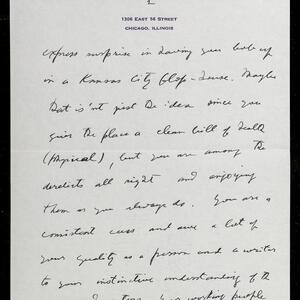 2
1306 EAST 56 STREET
CHICAGO, ILLINOIS
express surprise in having you hole up
in a Kansas City flop-house. Maybe
that is'nt just the idea since you
give the place a clean bill of health
(physical), but you are among the
derelicts all right and enjoying
them as you always do. You are a
consistent cuss and owe a lot of
your quality as a person and a writer
to your instinctive understanding of the
working people